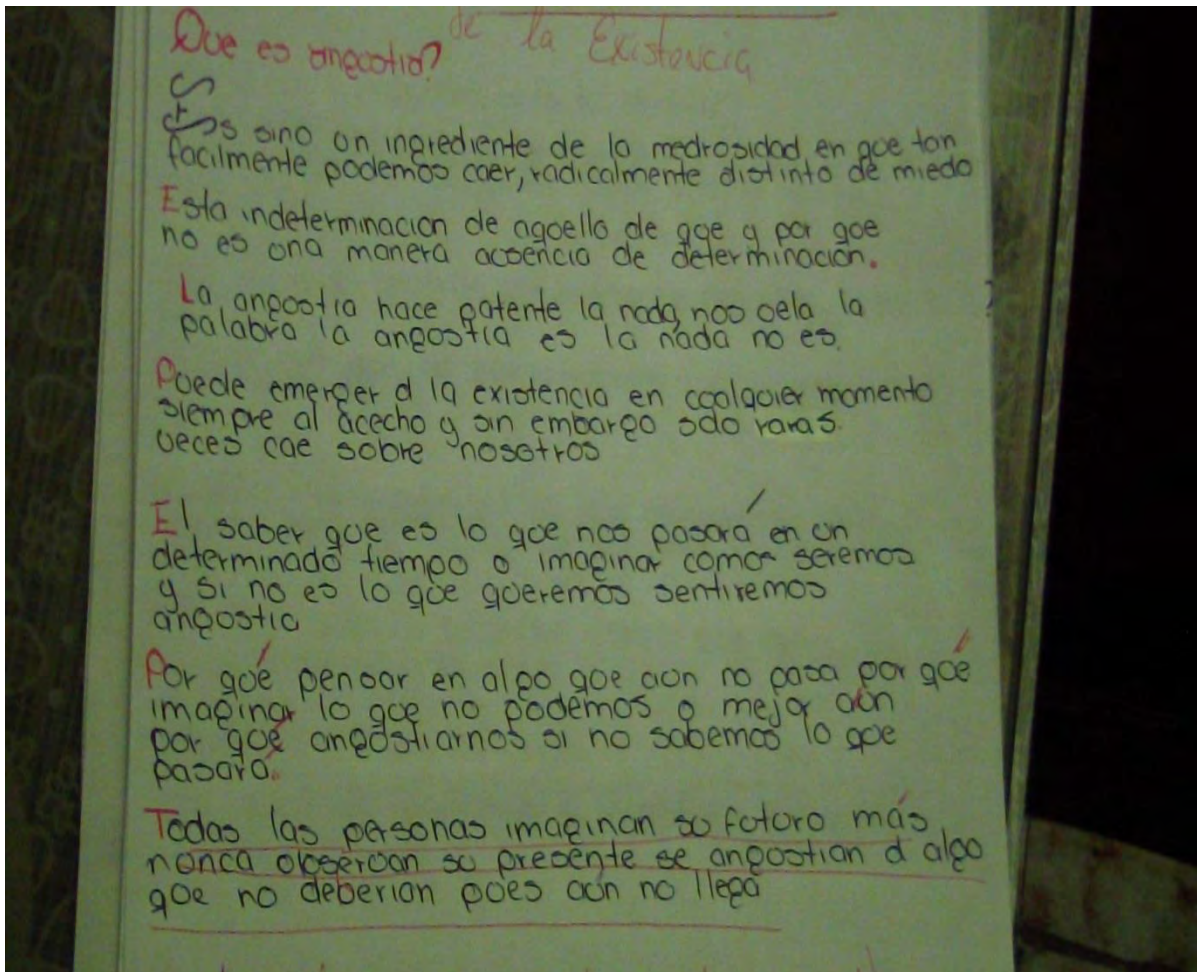 de la Existencia
Que es angustia?
Es sino un ingrediente de la medrosidad en que tan
facilmente podemos caer, radicalmente distinto de miedo
Esta indeterminacion de aquello de que y por que
no es una manera ausencia de determinación.
La angustia hace patente la nada nos vela la
palabra la angustia es la nada no es.
Puede emerger d la existencia en cualquier momento
siempre al acecho y sin embargo solo raras
veces cae sobre nosotros
El saber que es lo que nos pasará en un
determinado tiempo o imaginar como seremos
y si no es lo que queremos sentiremos
angustia
Por qué pensar en algo que aun no pasa por qué
imaginar lo que no podemos o mejor aún
por qué angustiarnos si no sabemos lo que
pasará.
Todas las personas imaginan su futuro más
nunca observan su presente se angustian d algo
que no deberian pues aún no llega